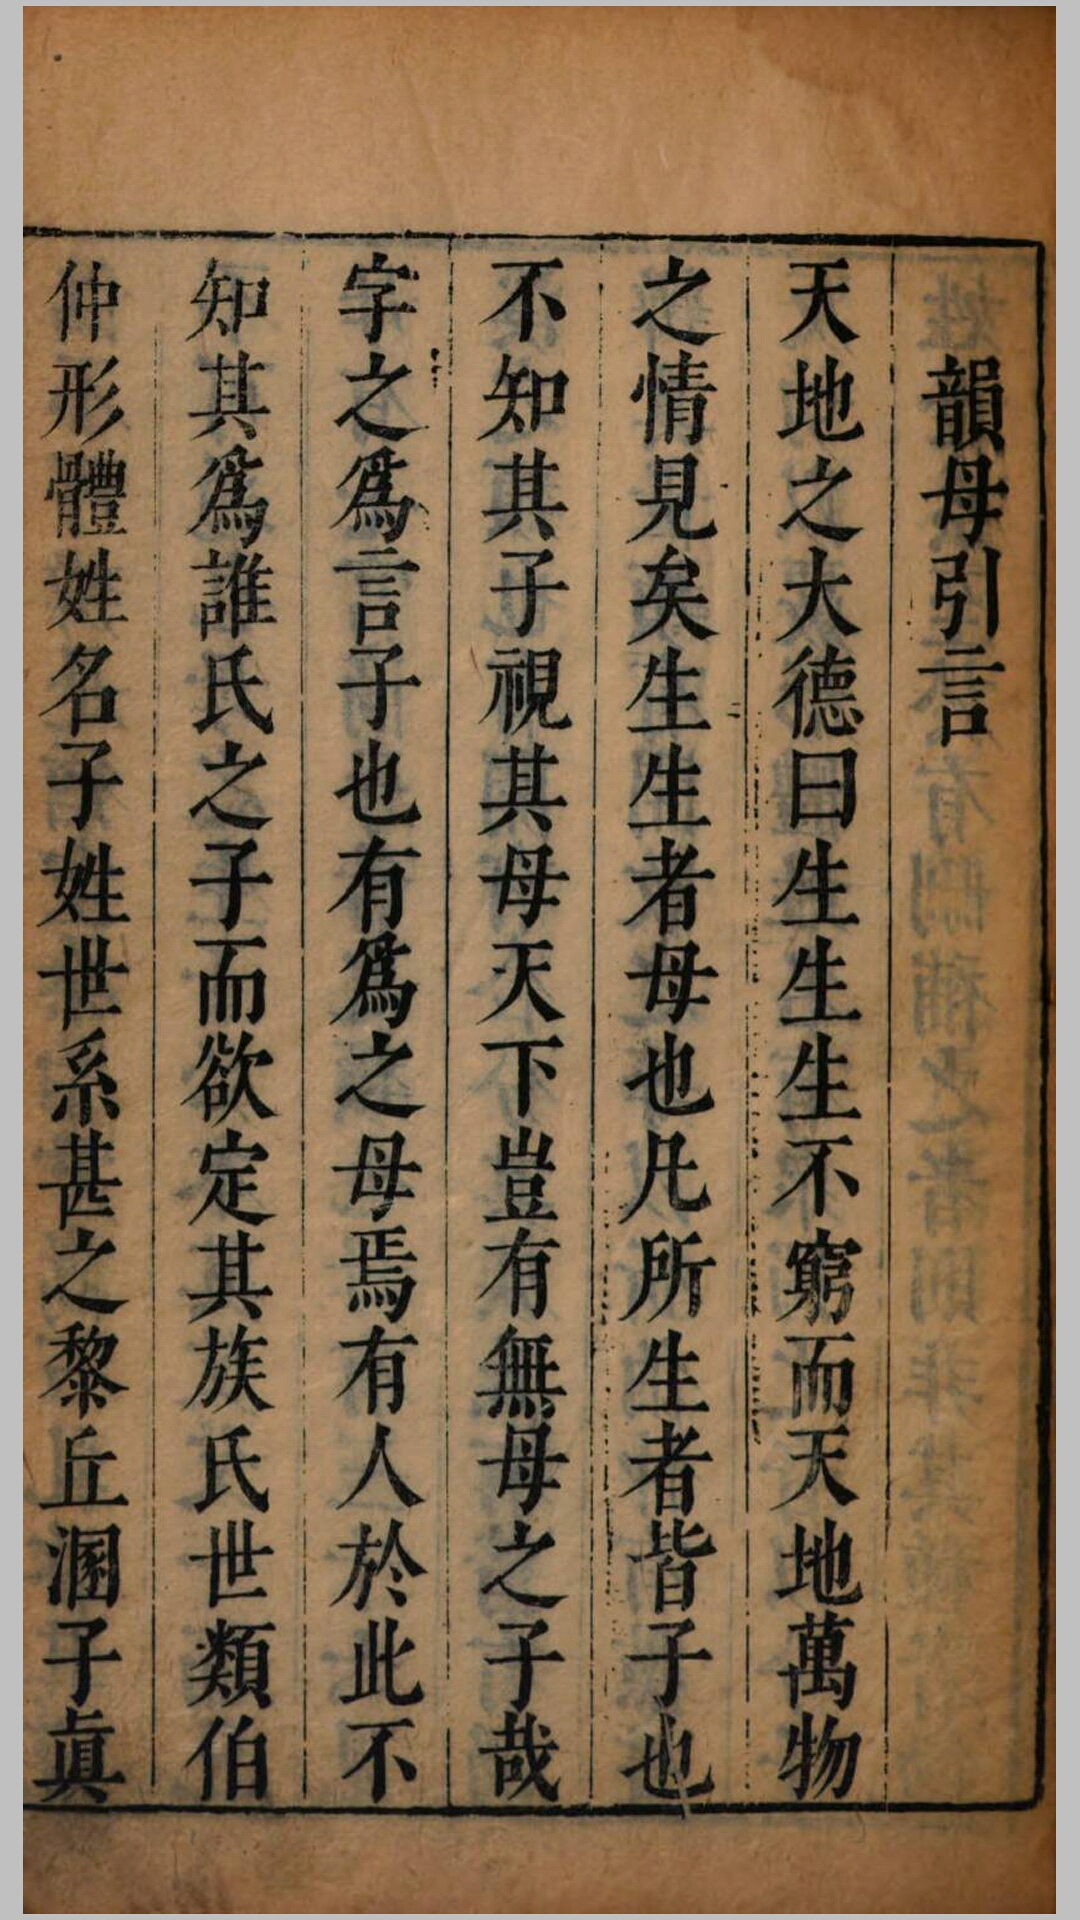 韻母引言
天地之大德曰生生生不窮而天地萬物
之情見矣生生者母也凡所生者皆子也
不知其子視其母天下豈有無母之子哉
字之爲言子也有爲之母焉有人於此不
知其爲誰氏之子而欲定其族氏世類伯
仲形體姓名子姓世系甚之黎丘溷子眞